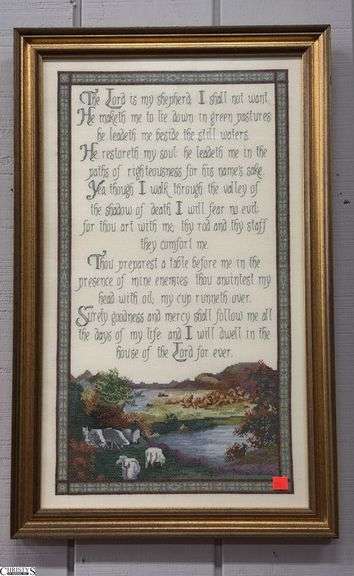 The Lord is my shepherd; I shall not want.
He maketh me to lie down in green pastures
he leadeth me beside the still waters.
He restoreth my soul: he leadeth me in the
paths of righteousness for his name's sake.
Yea though I walk through the valley of
the shadow of death, I will fear no evil:
for thou art with me; thy rod and thy staff
they comfort me.
Thou preparest a table before me in the
presence of mine enemies: thou anointest my
head with oil; my cup runneth over.
Surely goodness and mercy shall follow me all
the days of my life: and I will dwell in the
house of the Lord for ever.
CHRISTY'S